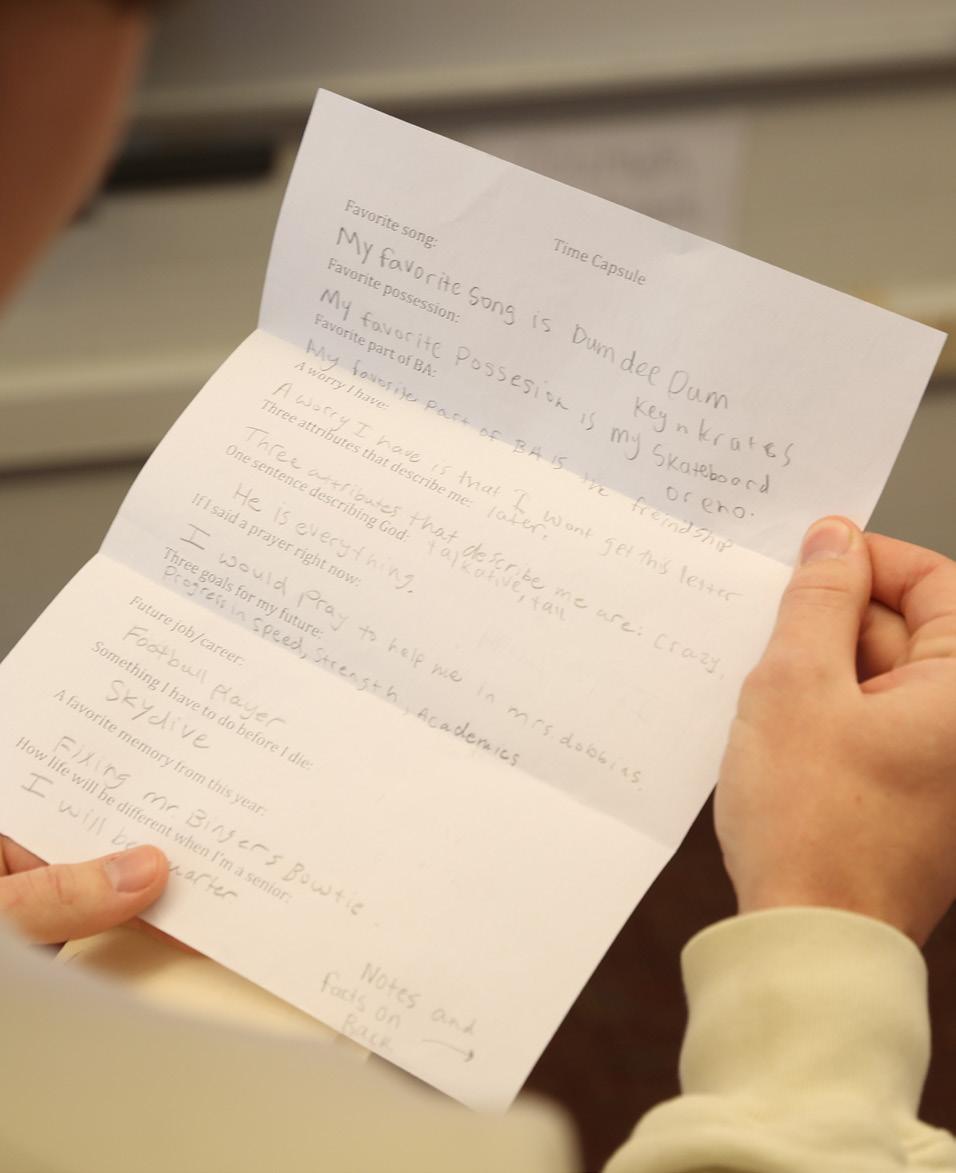 Time Capsule
Favorite song:
My favorite Song is Dum dee Dum
Keynkrates
Favorite possession:
My favorite Possesion is my Skateboard
or eno.
Favorite part of BA:
My favorite part of BA is the freindship
A worry I have:
A worry I have is that I wont get this letter
later.
Three attributes that describe me:
Three attributes that describe me are: Crazy,
talkative, tall
One sentence describing God:
He is everything.
If I said a prayer right now:
I would Pray to help me in mrs. dobbins.
Three goals for my future:
Progress in Speed, Strength, Academics
Future job/career:
Football Player
Something I have to do before I die:
Skydive
A favorite memory from this year:
Fixing mr. Bingers Bowtie.
How life will be different when I'm a senior:
I will be
Notes and
facts on
Back